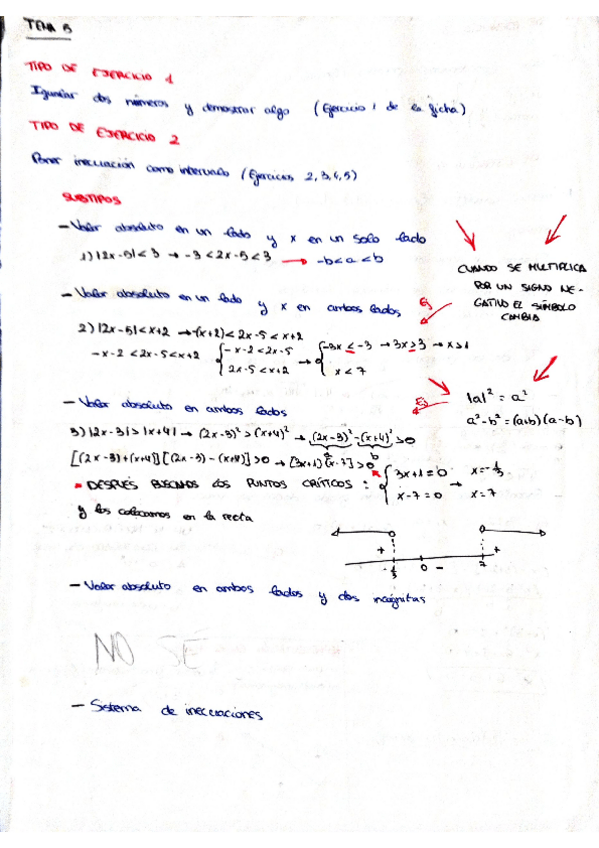 TEMA 5
TIPO DE EJERCICIO 1
Igualar dos números y demostrar algo (Ejercicio 1 de la ficha)
TIPO DE EJERCICIO 2
Poner inecuación como intervalo (Ejercicios 2,3,4,5)
SUBTIPOS
- Valor absoluto en un lado y x en un solo lado
1) |2x-5| < 3 → -3 < 2x-5 < 3 → -b < a < b
CUANDO SE MULTIPLICA
POR UN SIGNO NE-
GATIVO EL SÍMBOLO
CAMBIA
- Valor absoluto en un lado y x en ambos lados
Ej
2) |2x-5| < x+2 → -(x+2) < 2x-5 < x+2
-x-2 < 2x-5 < x+2 { -x-2 < 2x-5 → { -3x ≤ -3 → 3x ≥ 3 → x > 1
2x-5 < x+2 x < 7
- Valor absoluto en ambos lados
Ej
|a|² = a²
a²-b² = (a+b)(a-b)
3) |2x-3| > |x+4| → (2x-3)² > (x+4)² → (2x-3)² - (x+4)² > 0
a b
[(2x-3)+(x+4)] [(2x-3)-(x+4)] > 0 → [3x+1] [x-7] > 0
DESPUÉS BUSCAMOS LOS PUNTOS CRÍTICOS: { 3x+1=0 → x=-1/3
x-7=0 x=7
y los colocamos en la recta
+ - +
-1/3 0 7
- Valor absoluto en ambos lados y dos incógnitas
NO SÉ
- Sistema de inecuaciones